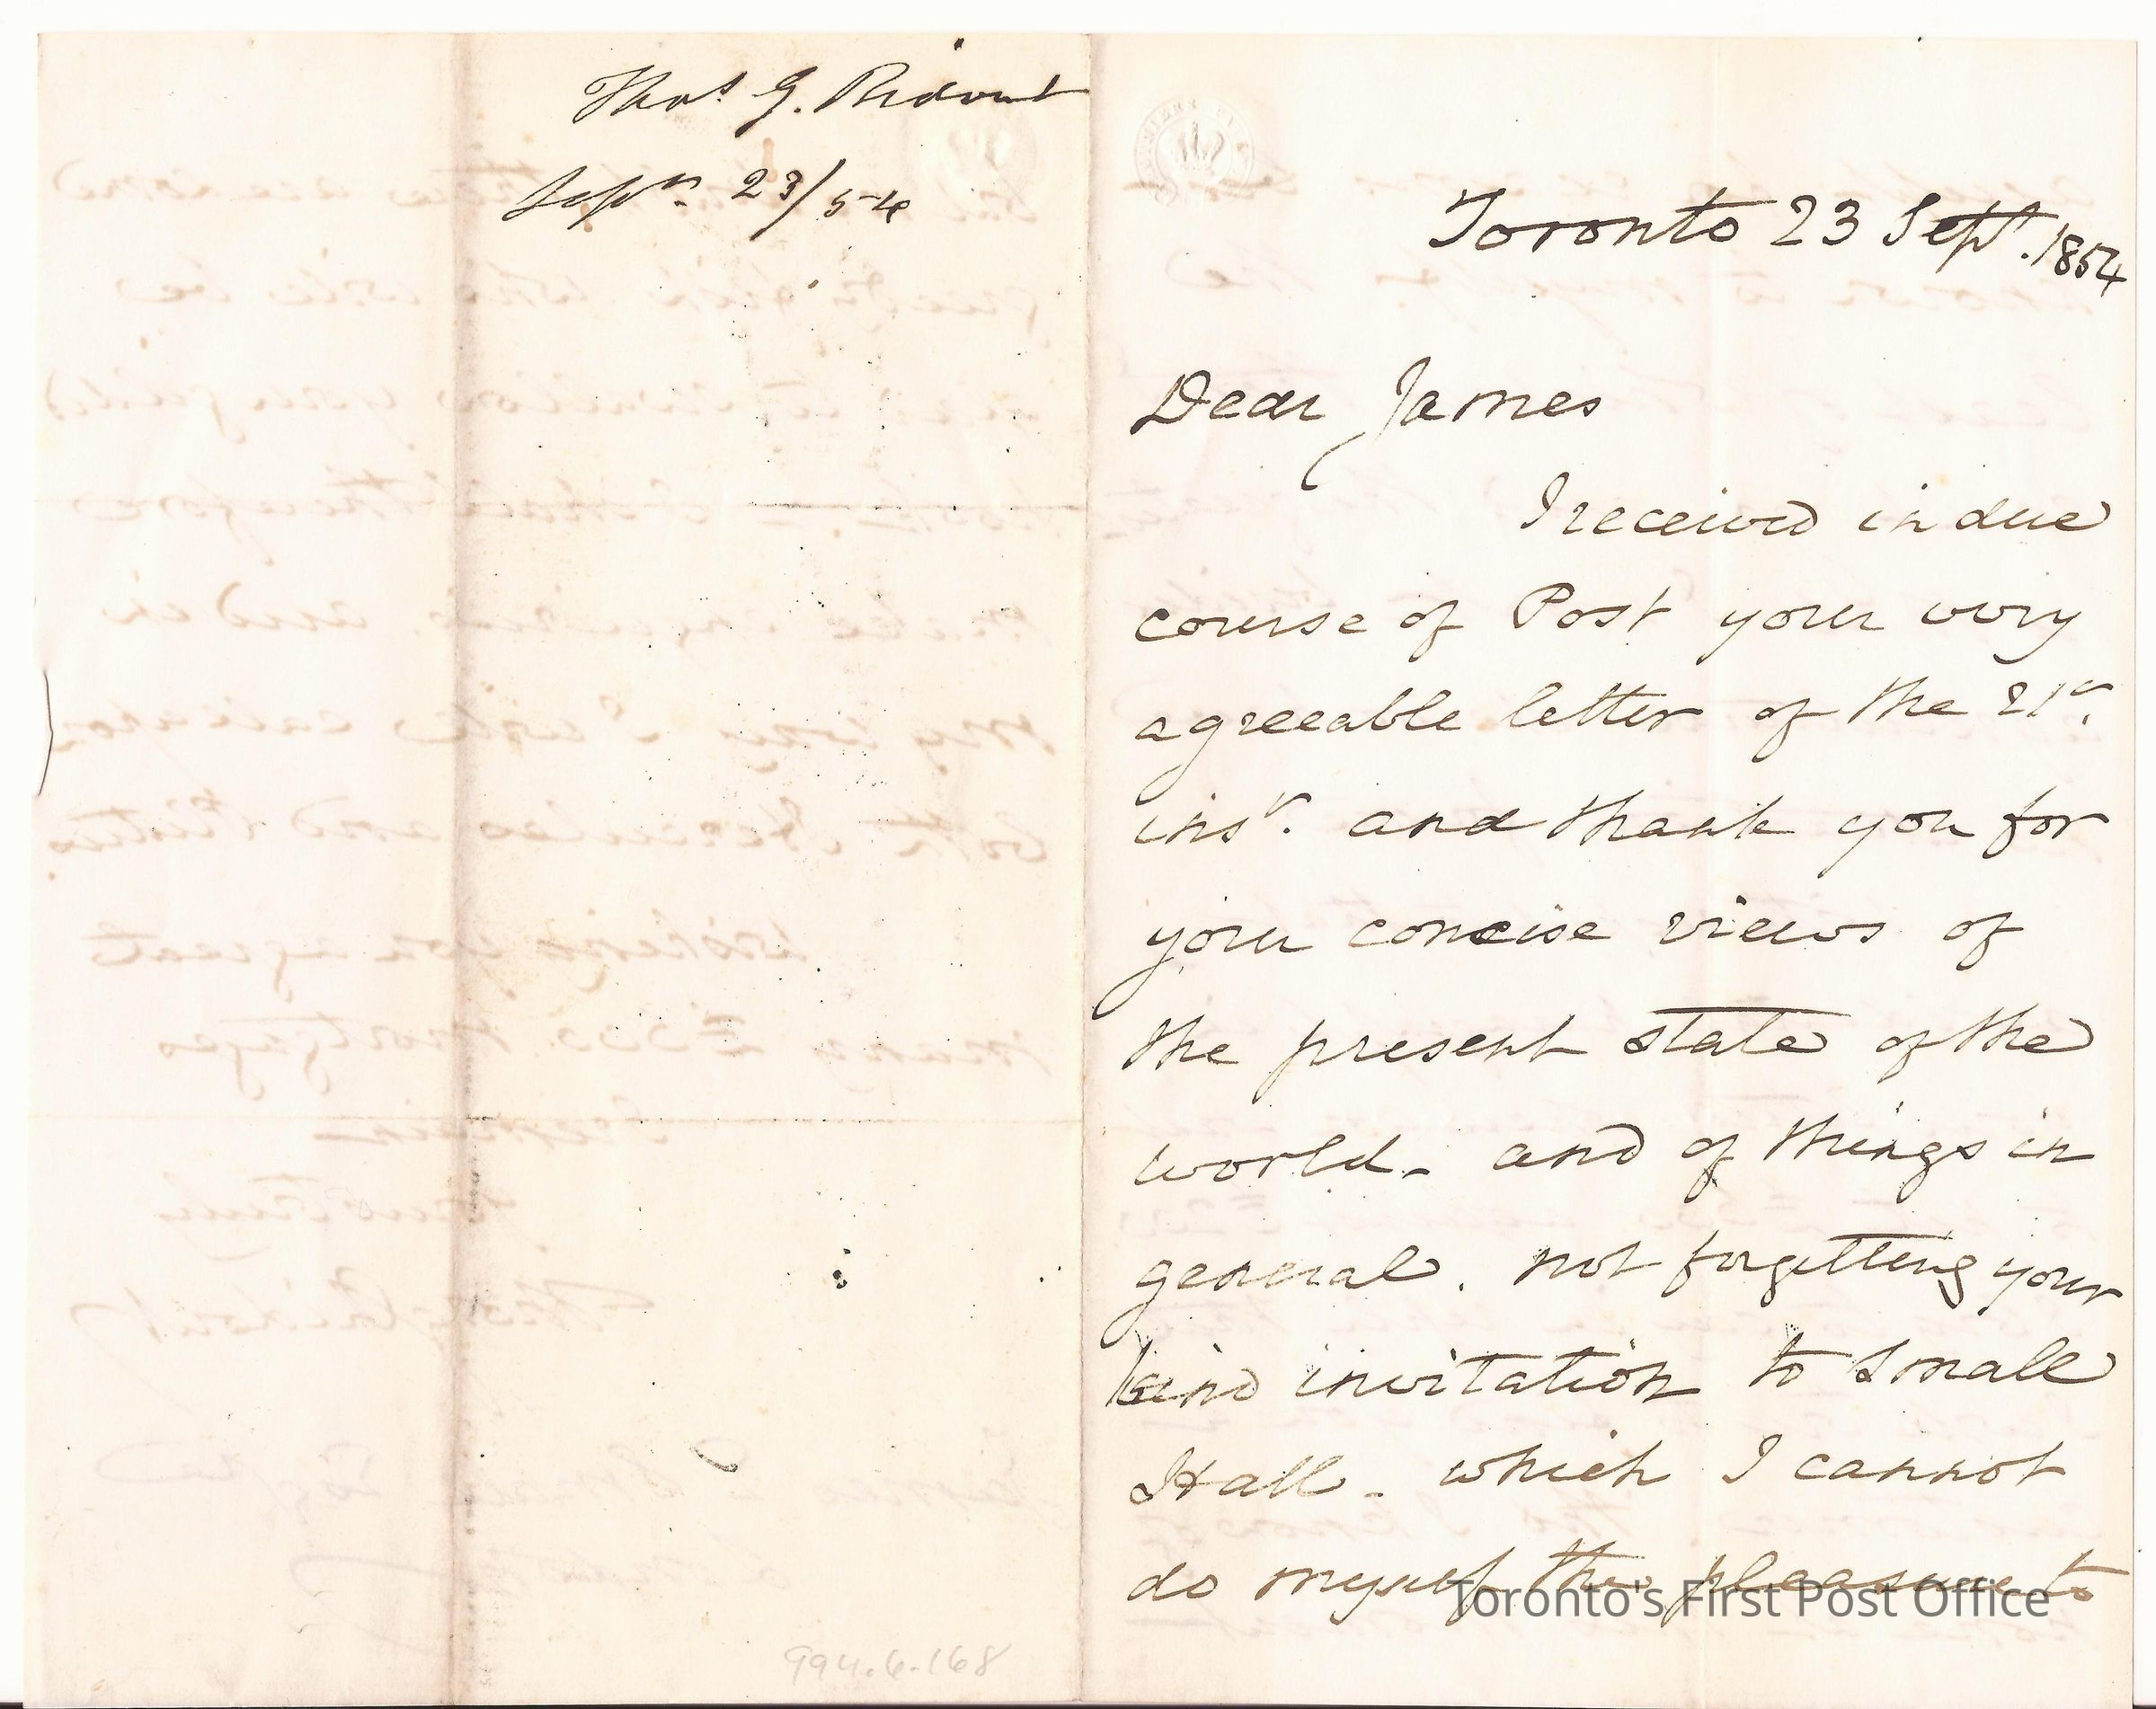 Thos. G. Ridout
Septr. 23/54
Toronto 23 Sept. 1854
Dear James
I received in due
course of Post your very
agreeable letter of the 21st.
inst. and thank you for
your concise views of
the present state of the
world - and of things in
general. not forgetting your
kind invitation to Small
Hall - which I cannot
do myself the pleasure to
Toronto's First Post Office
994.6.168